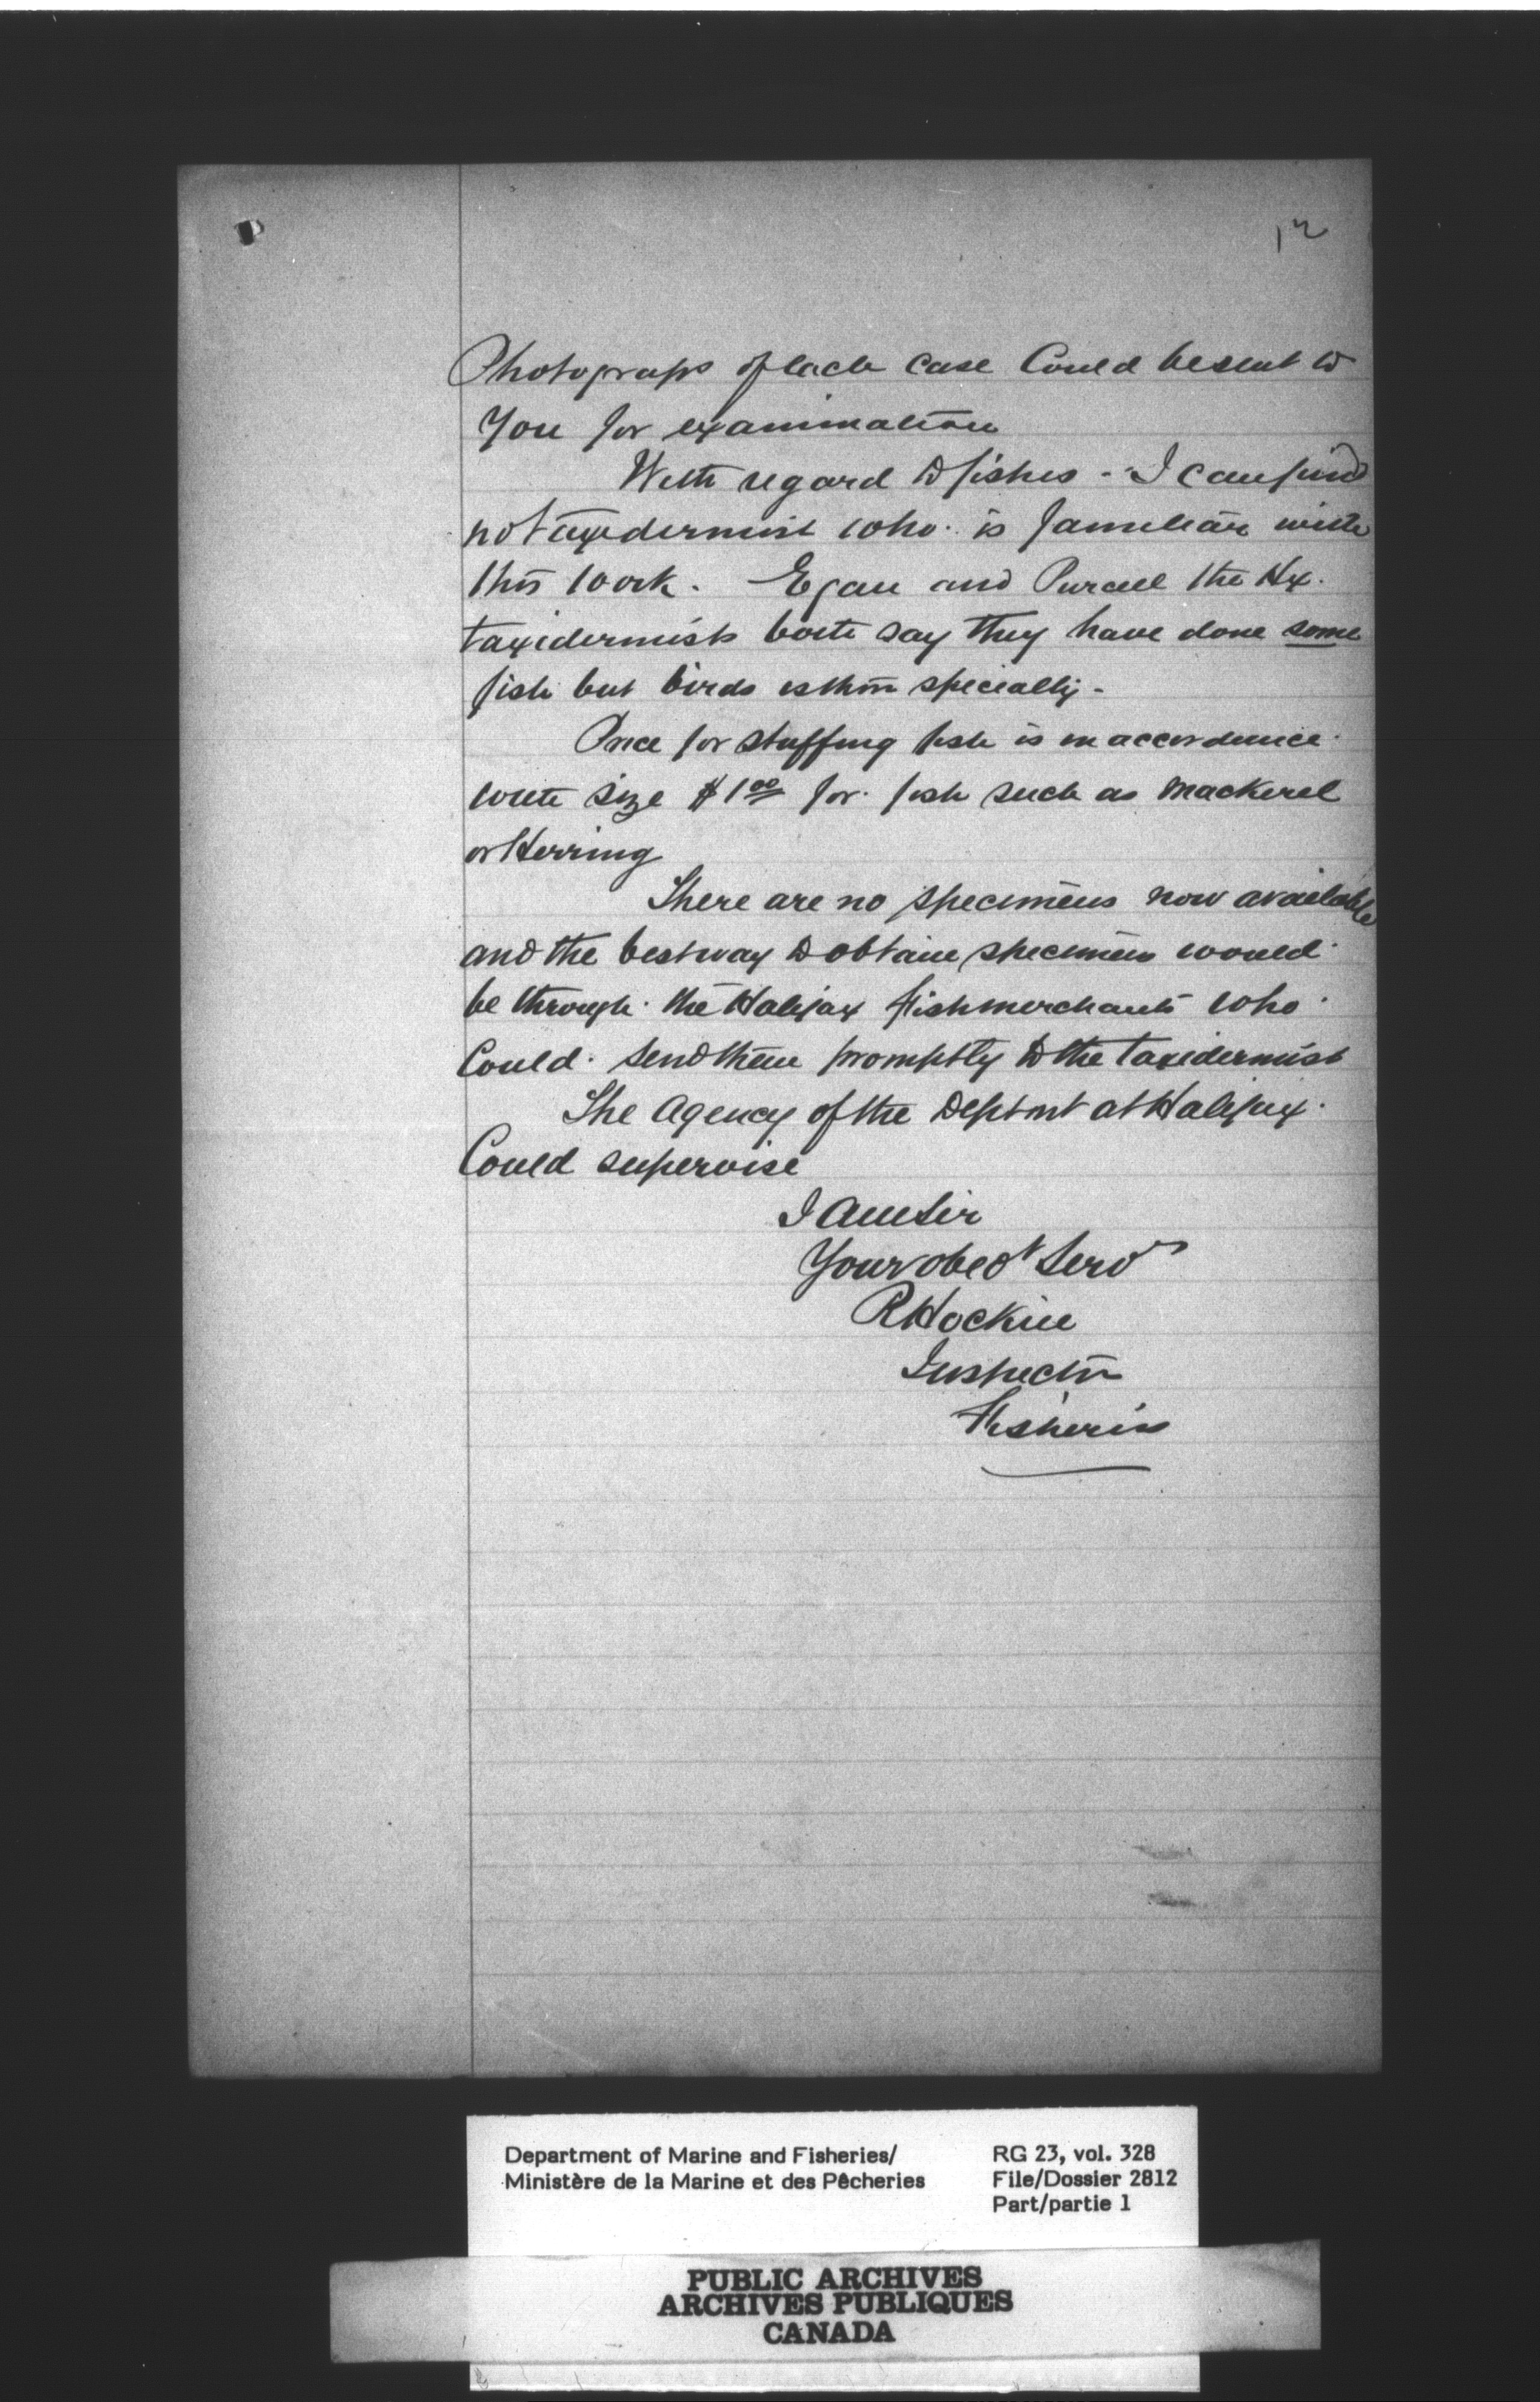 12
Photograps of each case Could be sent to
You for examination
With regard to fishes - I can find
no taxidermist who is familiar with
this work. Egan and Purcell the Hx.
taxidermists both say they have done some
fish but birds is their specially -
Price for stuffing fish is in accordance
with size $1.00 for fish such as Mackerel
or Herring
There are no specimens now available
and the best way to obtain specimens would
be through the Halifax Fish merchants who
Could send them promptly to the taxidermist
The Agency of the Deptmt at Halifax
Could supervise
I am Sir
Your obedt Servt
R Hockin
Inspector
Fisheries
Department of Marine and Fisheries/ RG 23, vol. 328
Ministère de la Marine et des Pêcheries File/Dossier 2812
Part/partie 1
PUBLIC ARCHIVES
ARCHIVES PUBLIQUES
CANADA